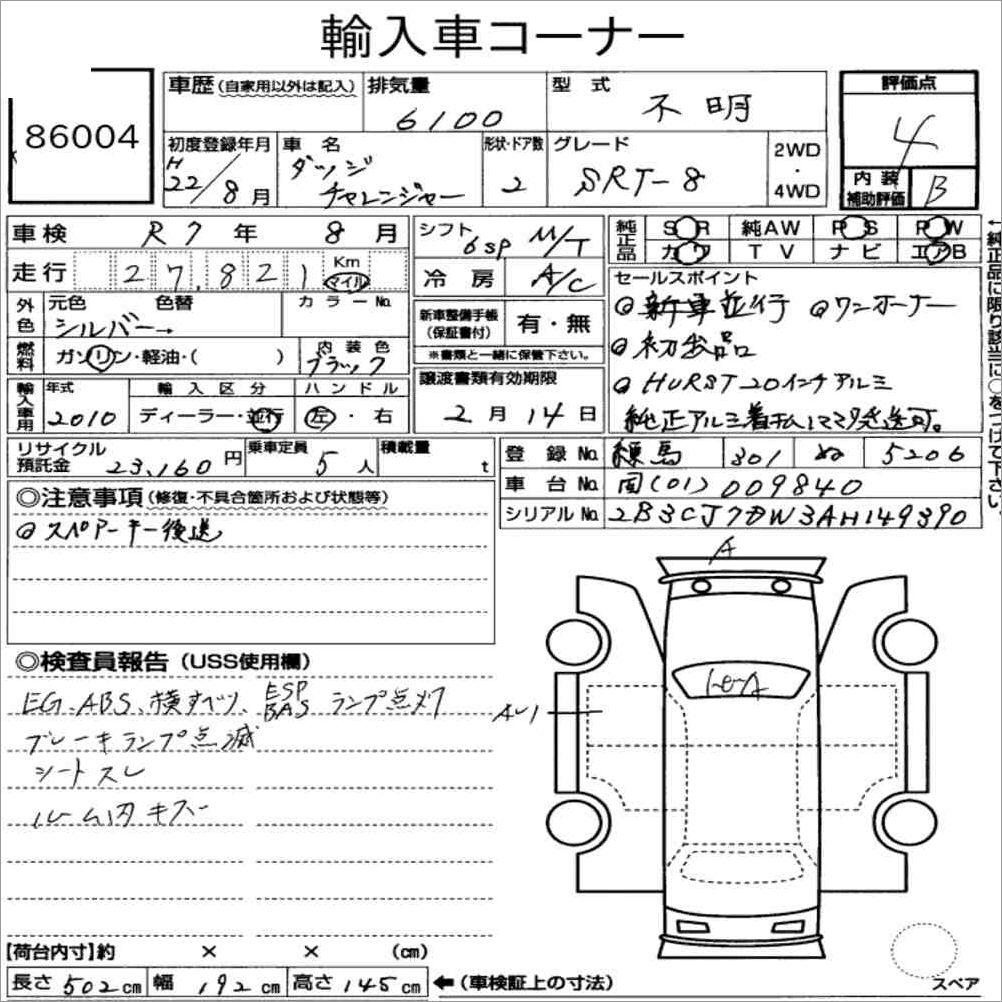 輸入車コーナー
86004
車歴(自家用以外は記入) 排気量 6100 型式 不明 評価点 4
初度登録年月 H22/8月 車名 ダッジ チャレンジャー 形状・ドア数 2 グレード SRT-8 2WD・4WD 内装補助評価 B
車検 R7年 8月
走行 27,821 Km マイル
外色 元色 シルバー→ 色替 カラーNo.
燃料 ガソリン・軽油・( ) 内装色 ブラック
輸入車用 年式 2010 輸入区分 ディーラー・並行 ハンドル 左・右
リサイクル預託金 23,160円 乗車定員 5人 積載量 t
シフト 6sp M/T
冷房 A/C
新車整備手帳(保証書付) 有・無
※書類と一緒に保管下さい。
譲渡書類有効期限
2月14日
純正品 SR 純AW PS PW
カワ TV ナビ エアB
←純正品に限り該当に○をつけて下さい。
セールスポイント
◎新車並行 ◎ワンオーナー
◎初出品
◎HURST 20インチアルミ
純正アルミ着払いにて発送可。
登録No. 練馬 301 ぬ 5206
車台No. 国(01)009840
シリアルNo. 2B3CJ7DW3AH149390
◎注意事項(修復・不具合箇所および状態等)
◎スペアーキー後送
◎検査員報告(USS使用欄)
EG、ABS、横すべり、ESP BAS ランプ点灯
ブレーキランプ点滅
シートスレ
ルーム内キズ
A
A-1
【荷台内寸】約 × × (cm)
長さ 502cm 幅 192cm 高さ 145cm ←(車検証上の寸法)
スペア